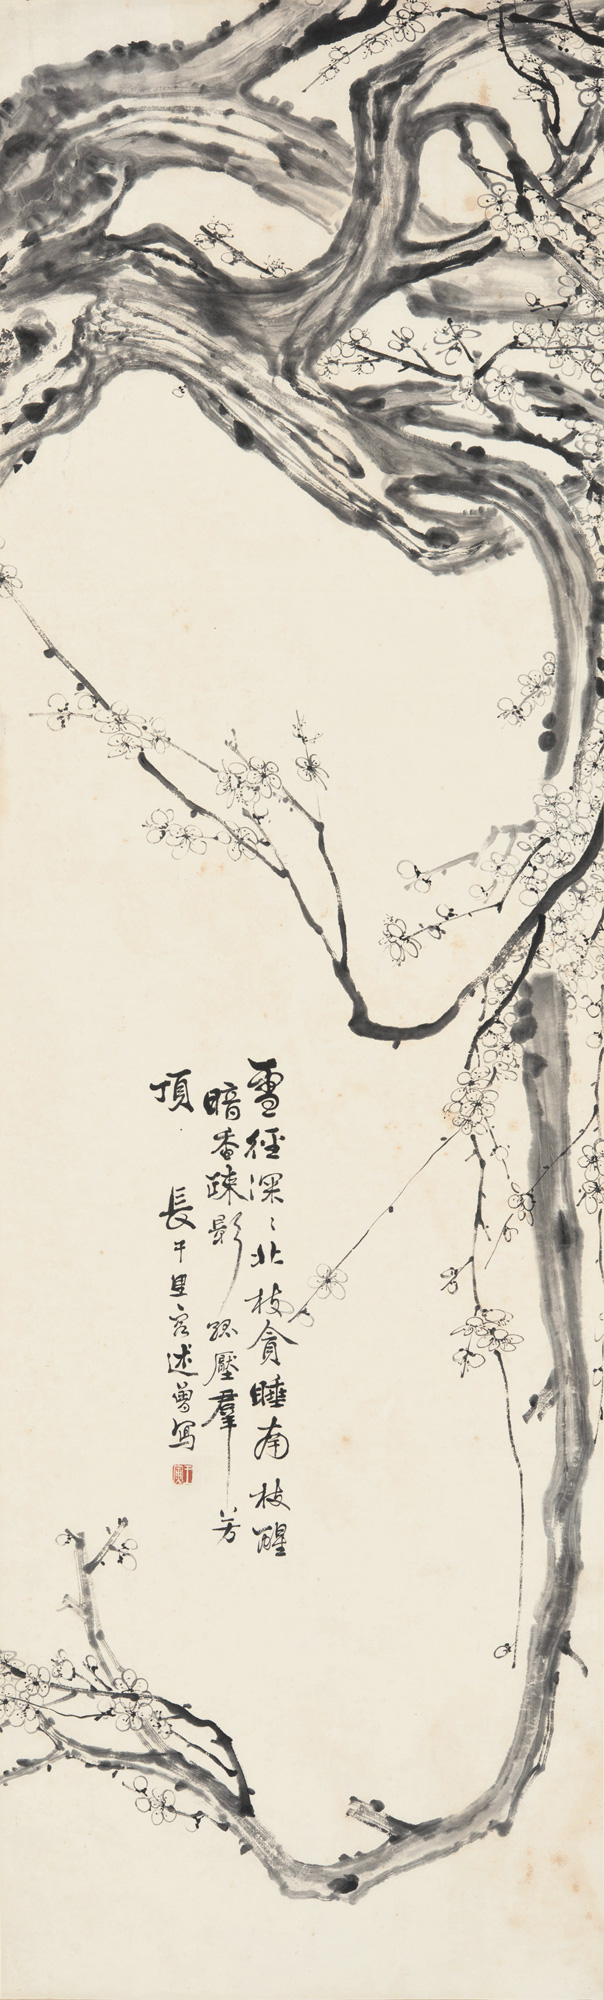 雪徑深〻北枝貪睡南枝醒
暗香疎影孤壓羣芳
頂
長千里客述曾寫